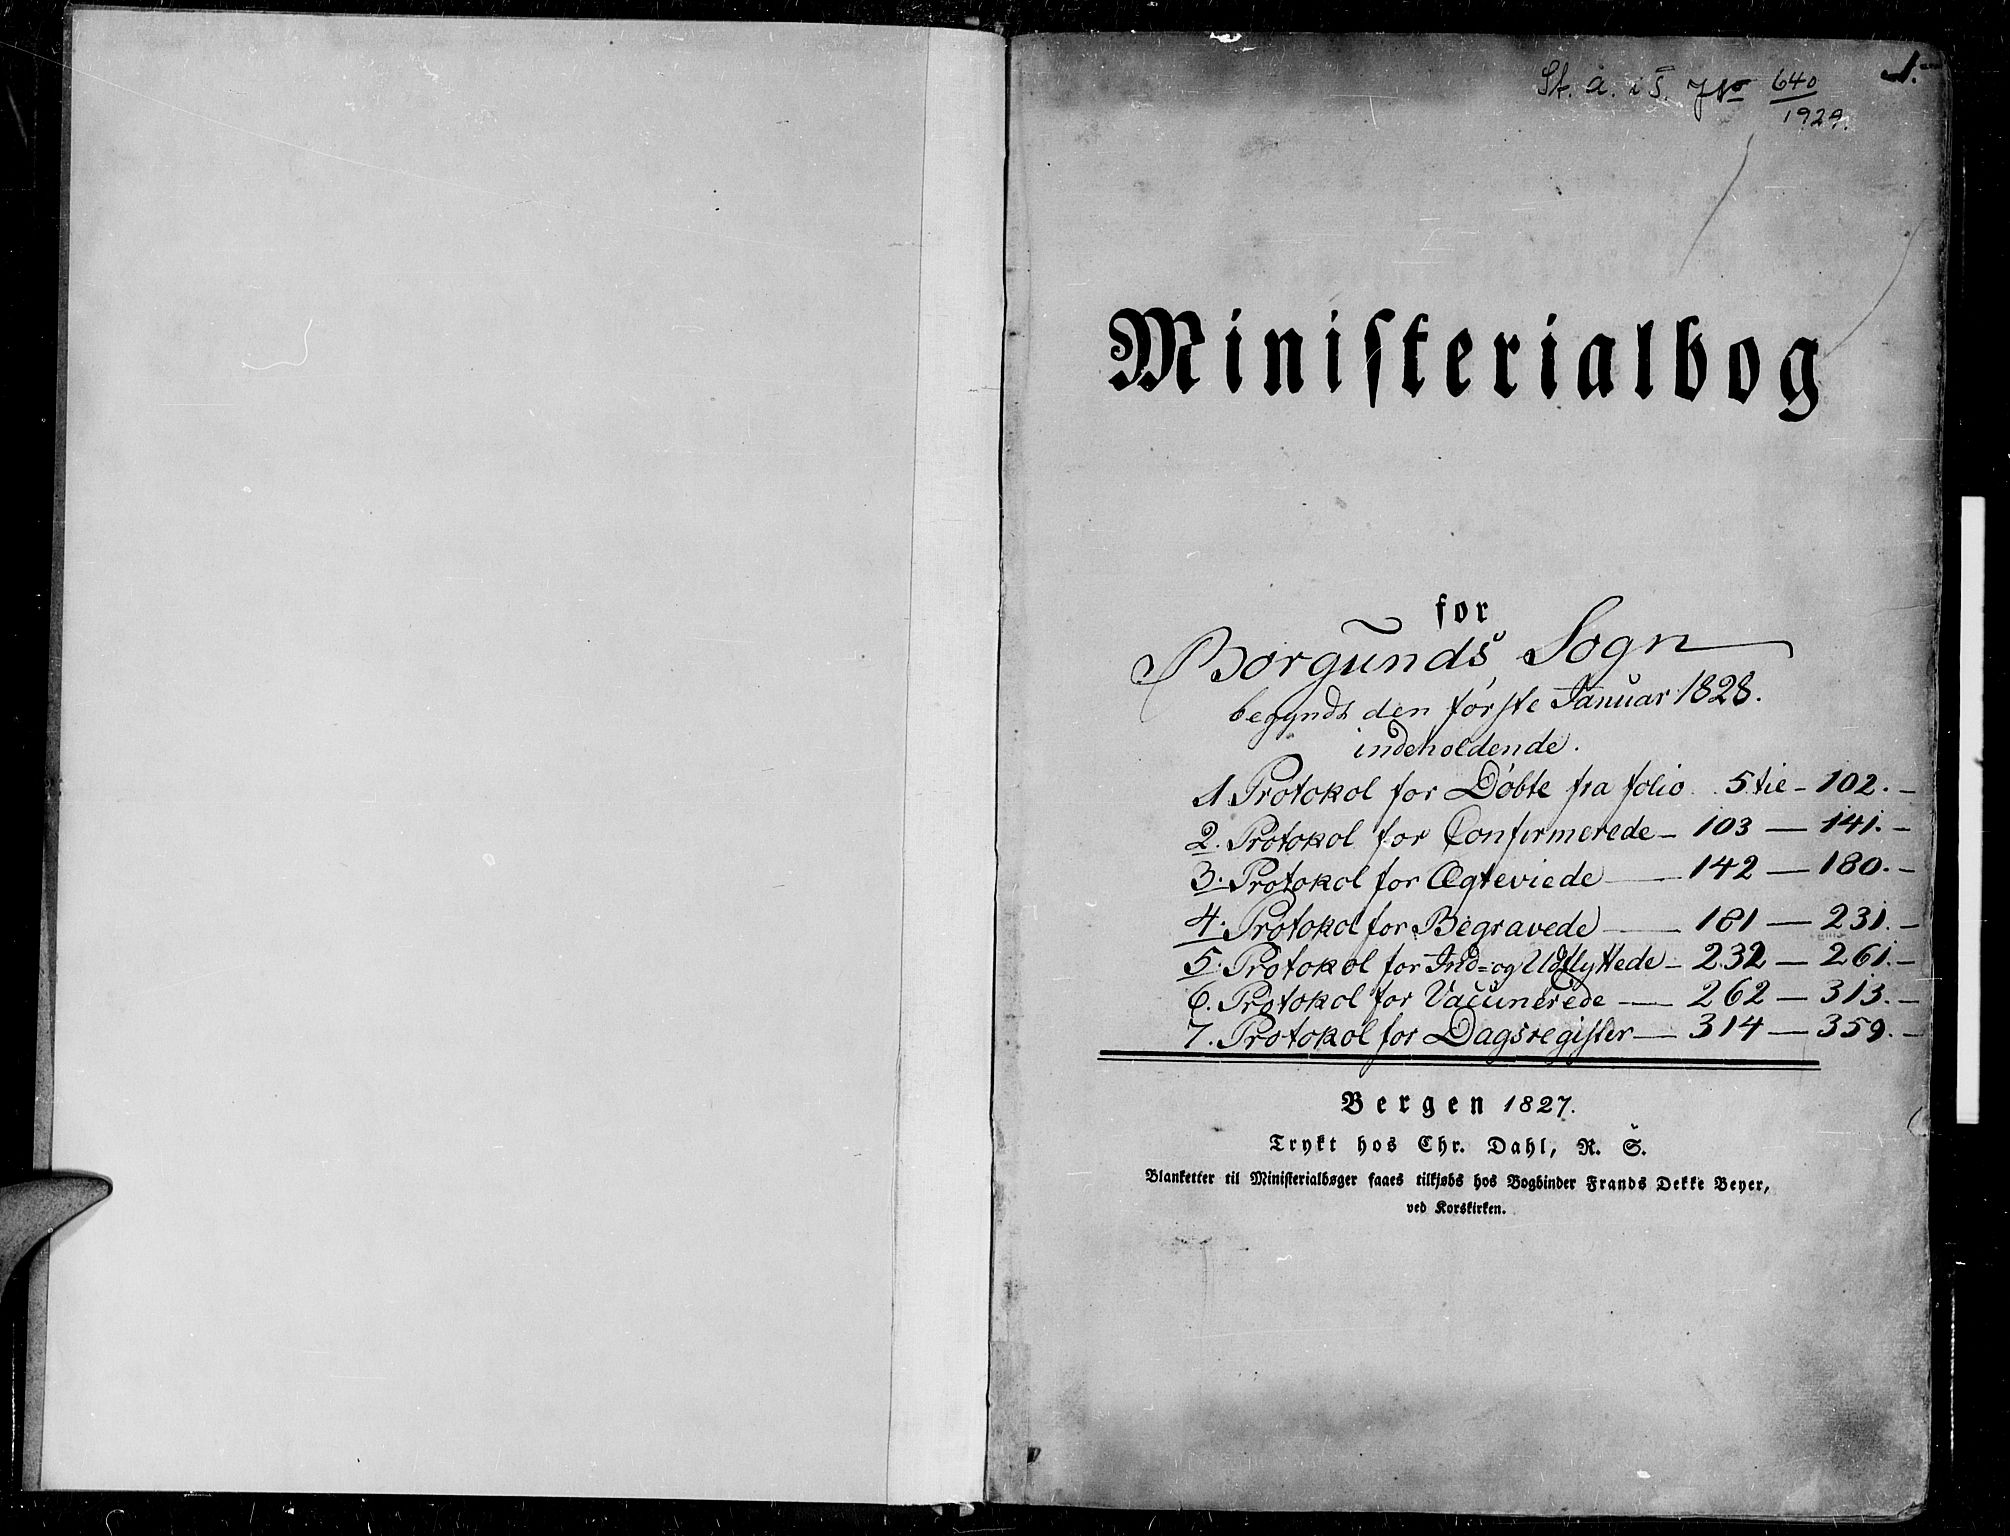 1.
St. a. i T. J№ 640/1929.
Ministerialbog
for
Borgunds Sogn
begyndt den første Januar 1828.
indeholdende.
1 Protokol for Døbte fra folio 5 tie - 102. -
2. Protokol for Confirmerede - 103 — 141. -
3. Protokol for Ægteviede — 142 — 180. -
4. Protokol for Begravede — 181 — 231. -
5. Protokol for Ind- og Udflyttede - 232 — 261. -
6. Protokol for Vaccinerede — 262 — 313. -
7. Protokol for Dagsregister — 314 — 359. -
Bergen 1827.
Trykt hos Chr. Dahl, R. S.
Blanketter til Ministerialbøger faaes tilkjøbs hos Bogbinder Frands Dekke Beyer,
ved Korskirken.